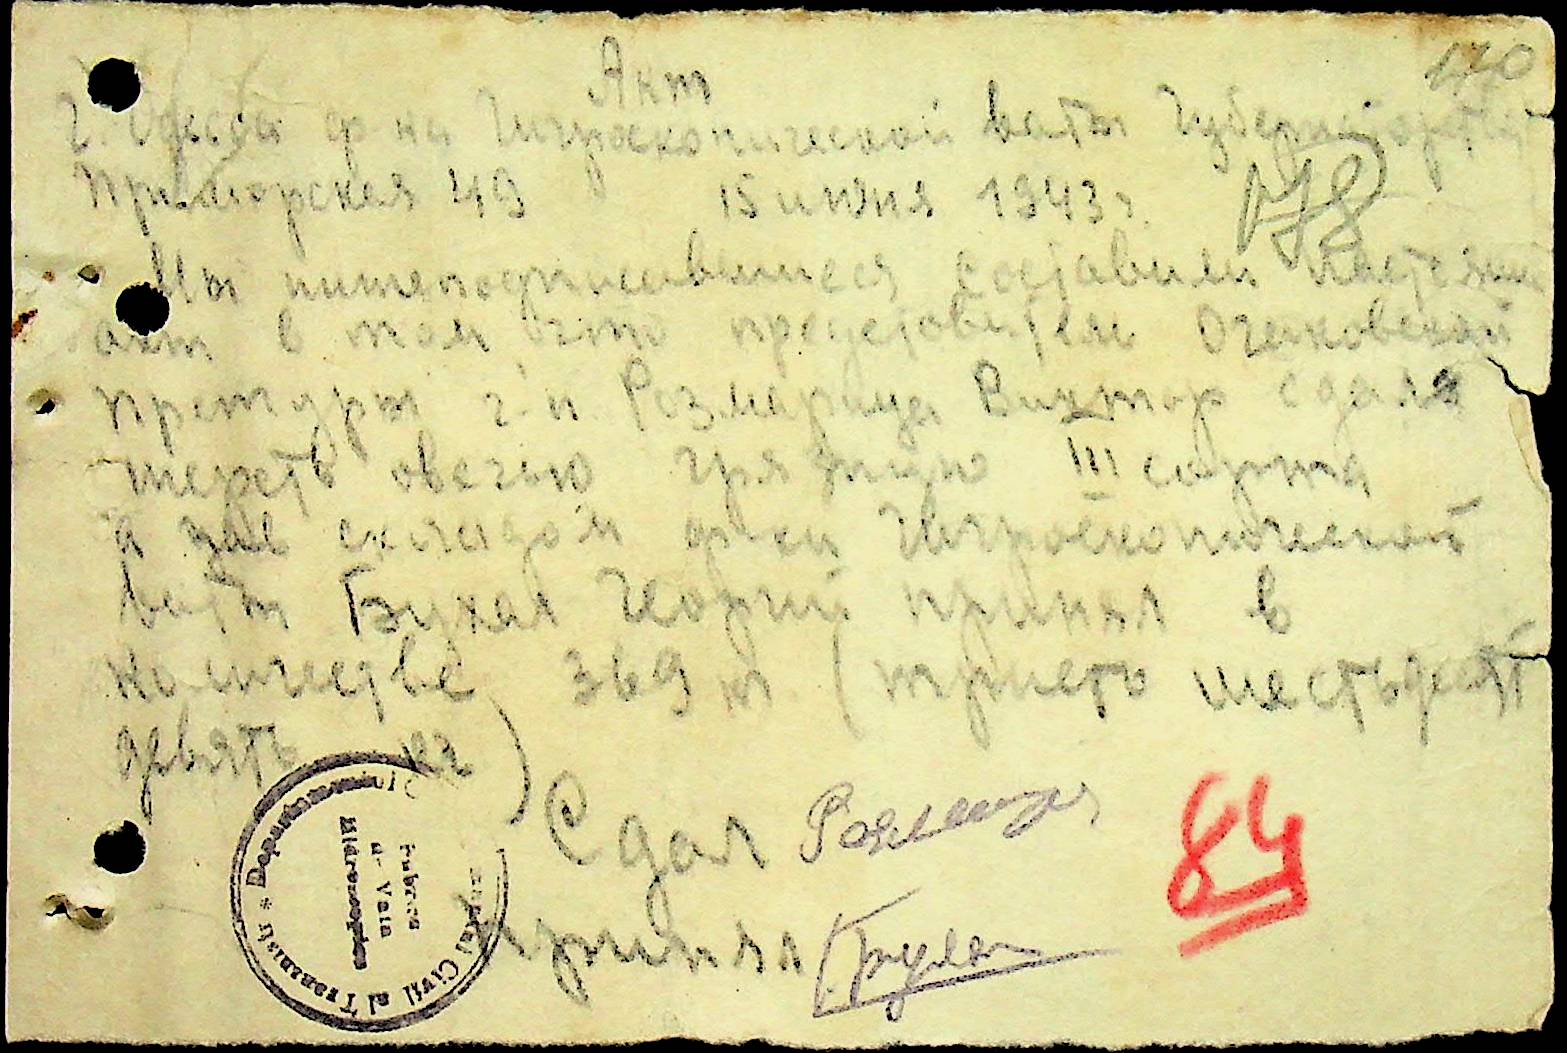 170
Акт
г. Одесса ф-ка Гигроскопической ваты Губернаторства
Приморская 49 15 июня 1943 г.
178
Мы нижеподписавшиеся составили настоящий
акт в том что представитель Очаковской
претуры г-н Розмарица Виктор сдал
шерсть овечью грязную III сорта
а зав складом ф-ки Гигроскопической
ваты Георгий принял в
количестве 369 кг (триста шестьдесят
девять кг)
Сдал
Принял
84
Departamentul
Civil al Transnistr *
Fabrica
de Vata